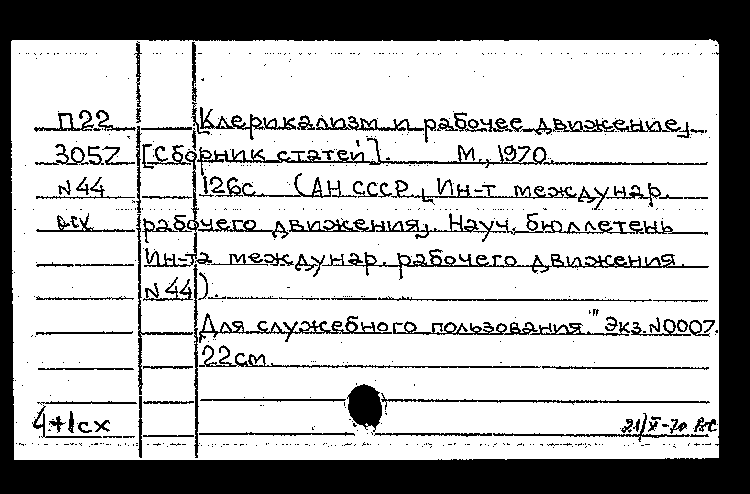 П22 Клерикализм и рабочее движение,
3057 [Сборник статей]. М., 1970.
N44 126с. (АН СССР, Ин-т междунар.
рабочего движения,. Науч. бюллетень
Ин-та междунар. рабочего движения.
N 44).
Для служебного пользования." Экз.N0007.
22см.
4+1сх 21/V-70